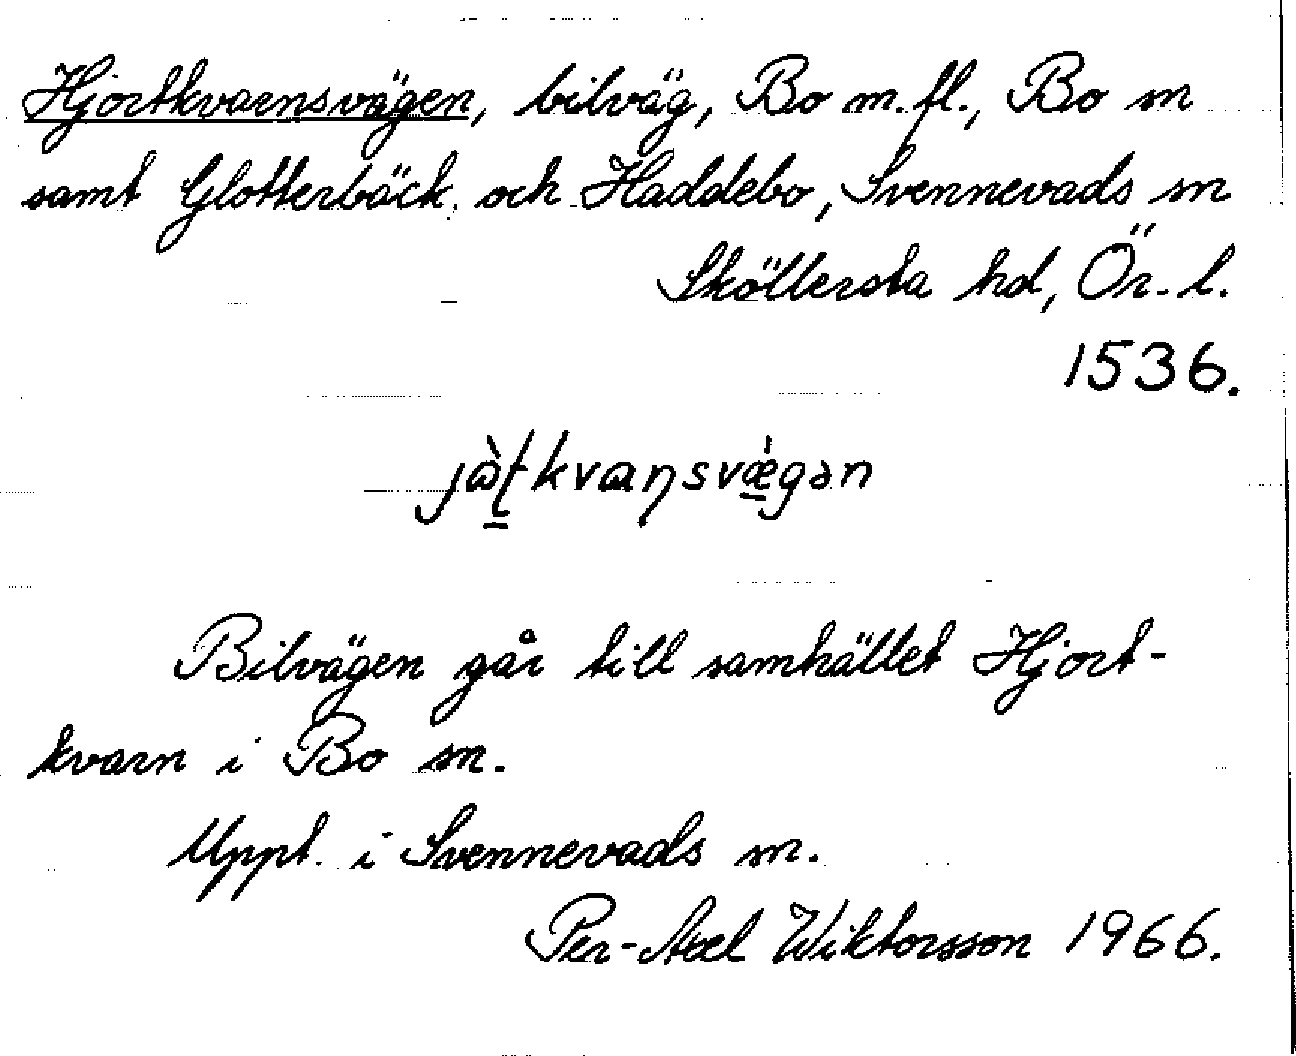 Hjortkvarnsvägen, bilväg, Bo m. fl., Bo sn
samt Glotterbäck och Haddebo, Svennevads sn
Sköllersta hd, Ör. l.
1536.
jὼ̱ʈkvaɳsvǽ̱gən
Bilvägen går till samhället Hjort-
kvarn i Bo sn.
Uppt. i Svennevads sn.
Per-Axel Wiktorsson 1966.